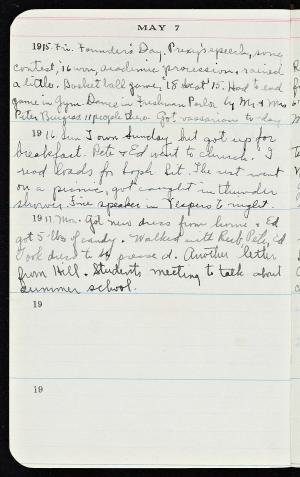 MAY 7
1915. Fri. Founder's Day. Prexy's speech, song
contest, '16 won, academic procession, rained
a little. Basket ball game, '18 beat '15. Had to lead
game in Gym. Dance in Freshman Parlor by Mr & Mrs
Peter 11 people there. Got vassarion to-day
1916. Sun I own Sunday but got up for
breakfast. Pete & Ed went to church. I
read loads for Soph Lit. The rest went
on a picnic, got caught in thunder
shower. Fine speaker in Vespers to night.
1917. Mon. Got new dress from home & Ed
got 5 lbs of candy. Walked with Ruth Pete,
took dress to be pressed. Another letter
from Hill. Students meeting to talk about
summer school.
19
19